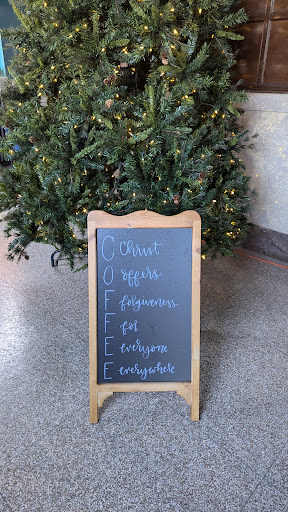 C Christ
O offers
F forgiveness
F for
E everyone
E everywhere